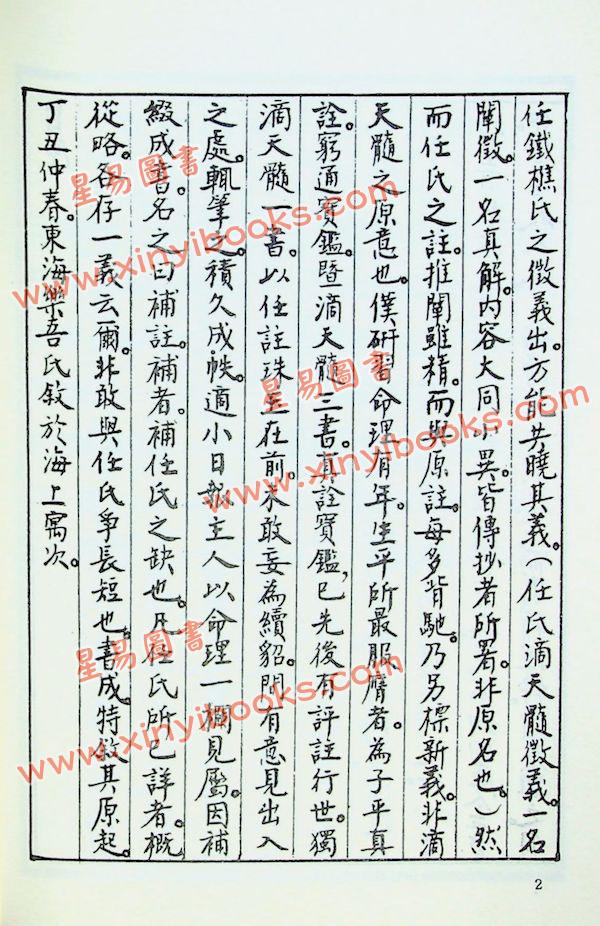 任鐵樵氏之徵義出。方能共曉其義。(任氏滴天髓徵義。一名
闡徵。一名真解。內容大同小異。皆傳抄者所署。非原名也。)然
而任氏之註。推闡雖精。而與原註。每多背馳。乃另標新義。非滴
天髓之原意也。僕研習命理有年。生平所最服膺者。為子平真
詮。窮通寶鑑。暨滴天髓三書。真詮寶鑑,已先後有評註行世。獨
滴天髓一書。以任註珠玉在前。未敢妄為續貂。間有意見出入
之處。輒筆之。積久成帙。適小日報主人以命理一欄見屬。因補
綴成書。名之曰補註。補者。補任氏之缺也。凡任氏所已詳者。概
從略。各存一義云爾。非敢與任氏爭長短也。書成。特敘其原起。
丁丑仲春。東海樂吾氏敘於海上寓次。
2
星易圖書
www.xinyibooks.com
星易圖書
www.xinyibooks.com
星易圖書
www.xinyibooks.com